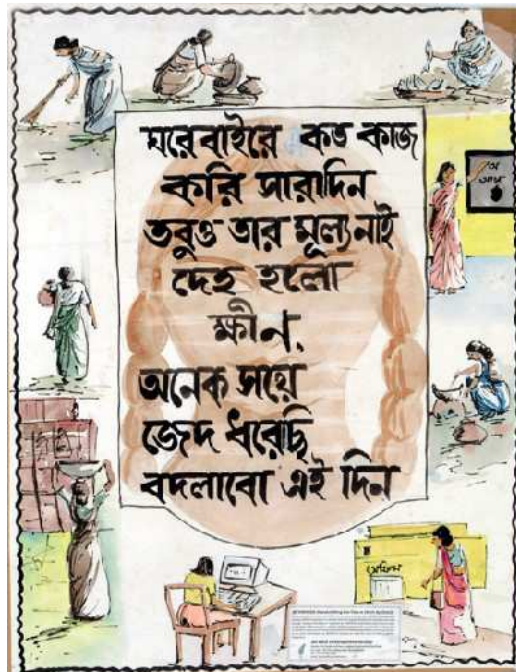 ঘরেবাইরে কত কাজ
করি সারাদিন
তবুও তার মূল্য নাই
দেহ হলো
ক্ষীন,
অনেক সয়ে
জেদ ধরেছি
বদলাবো এই দিন
অ
আম
অফিস